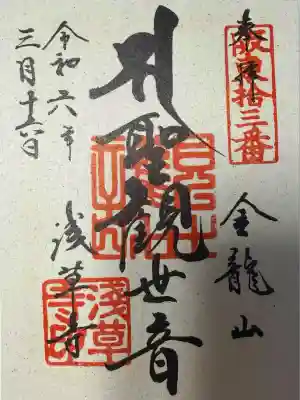 奉拝
坂東拾三番
金龍山
聖観世音
浅草寺
浅草
令和六年
三月十六日